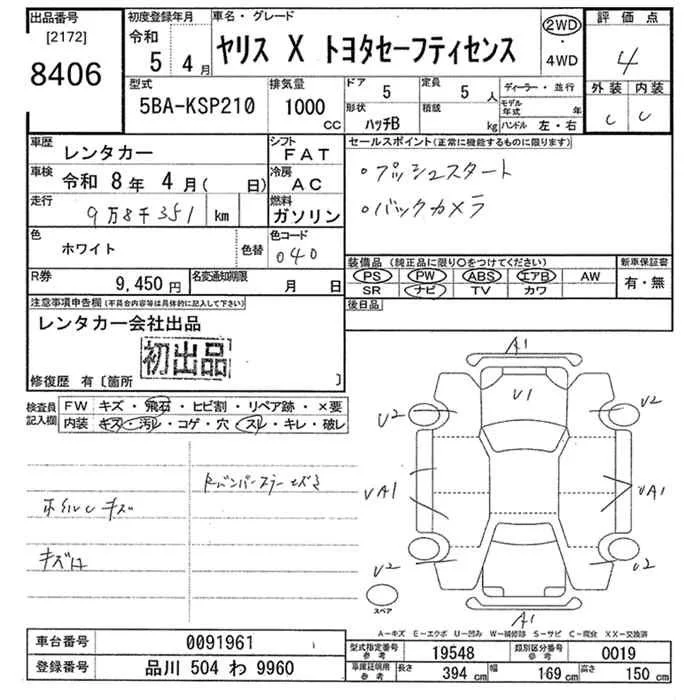 出品番号
[2172]
8406
初度登録年月
令和
5 4 月
車名・グレード
ヤリス X トヨタセーフティセンス
2WD
・
4WD
評価点
4
外装 内装
C C
型式
5BA-KSP210
排気量
1000
CC
ドア 5
形状 ハッチB
定員 5 人
積載 kg
ディーラー・並行
モデル年式 年
ハンドル 左・右
車歴 レンタカー
シフト FAT
車検 令和 8 年 4 月( 日)
冷房 AC
走行 9万8千351 km
燃料 ガソリン
色 ホワイト
色替
色コード 040
R券 9,450 円
名変通知期限 月 日
セールスポイント(正常に機能するものに限ります)
・プッシュスタート
・バックカメラ
装備品(純正品に限り○をつけてください)
PS PW ABS エアB AW
SR ナビ TV カワ
新車保証書
有・無
後日品
注意事項申告欄(不具合内容等は具体的に記入して下さい)
レンタカー会社出品
初出品
修復歴 有〔箇所 〕
検査員記入欄
FW キズ・飛石・ヒビ割・リペア跡・×要
内装 キズ・汚レ・コゲ・穴・スレ・キレ・破レ
ホイルキズ
A1
V1
V2
V2
VA1
VA1
V2
V2
A1
スペア
A-キズ E-エクボ U-凹み W-補修跡 S-サビ C-腐食 XX-交換済
車台番号 0091961
登録番号 品川 504 わ 9960
型式指定番号 参考 19548
類別区分番号 参考 0019
車庫証明用 参考 長さ 394 cm 幅 169 cm 高さ 150 cm